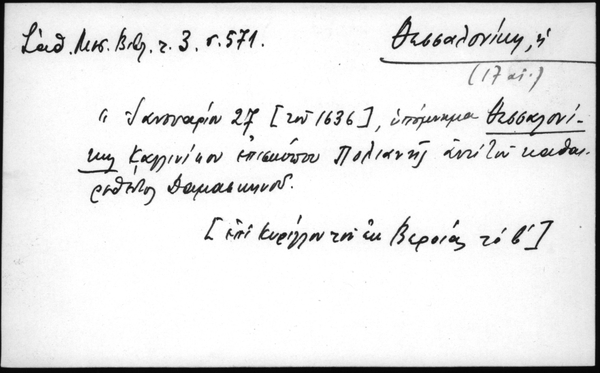 Σάθ. Μεσ. Βιβλ. τ. 3. σ. 571.
Θεσσαλονίκη, ἡ
(17 αἰ.)
"Ἰανουαρίου 27 [τοῦ 1636], ὑπόμνημα Θεσσαλονί-
κης Καλλινίκου ἐπισκόπου Πολιανῆς ἀντὶ τοῦ καθαι-
ρεθέντος Δαμασκηνοῦ.
[ἐπὶ Κυρίλλου τοῦ ἐκ Βεροίας τὸ β']